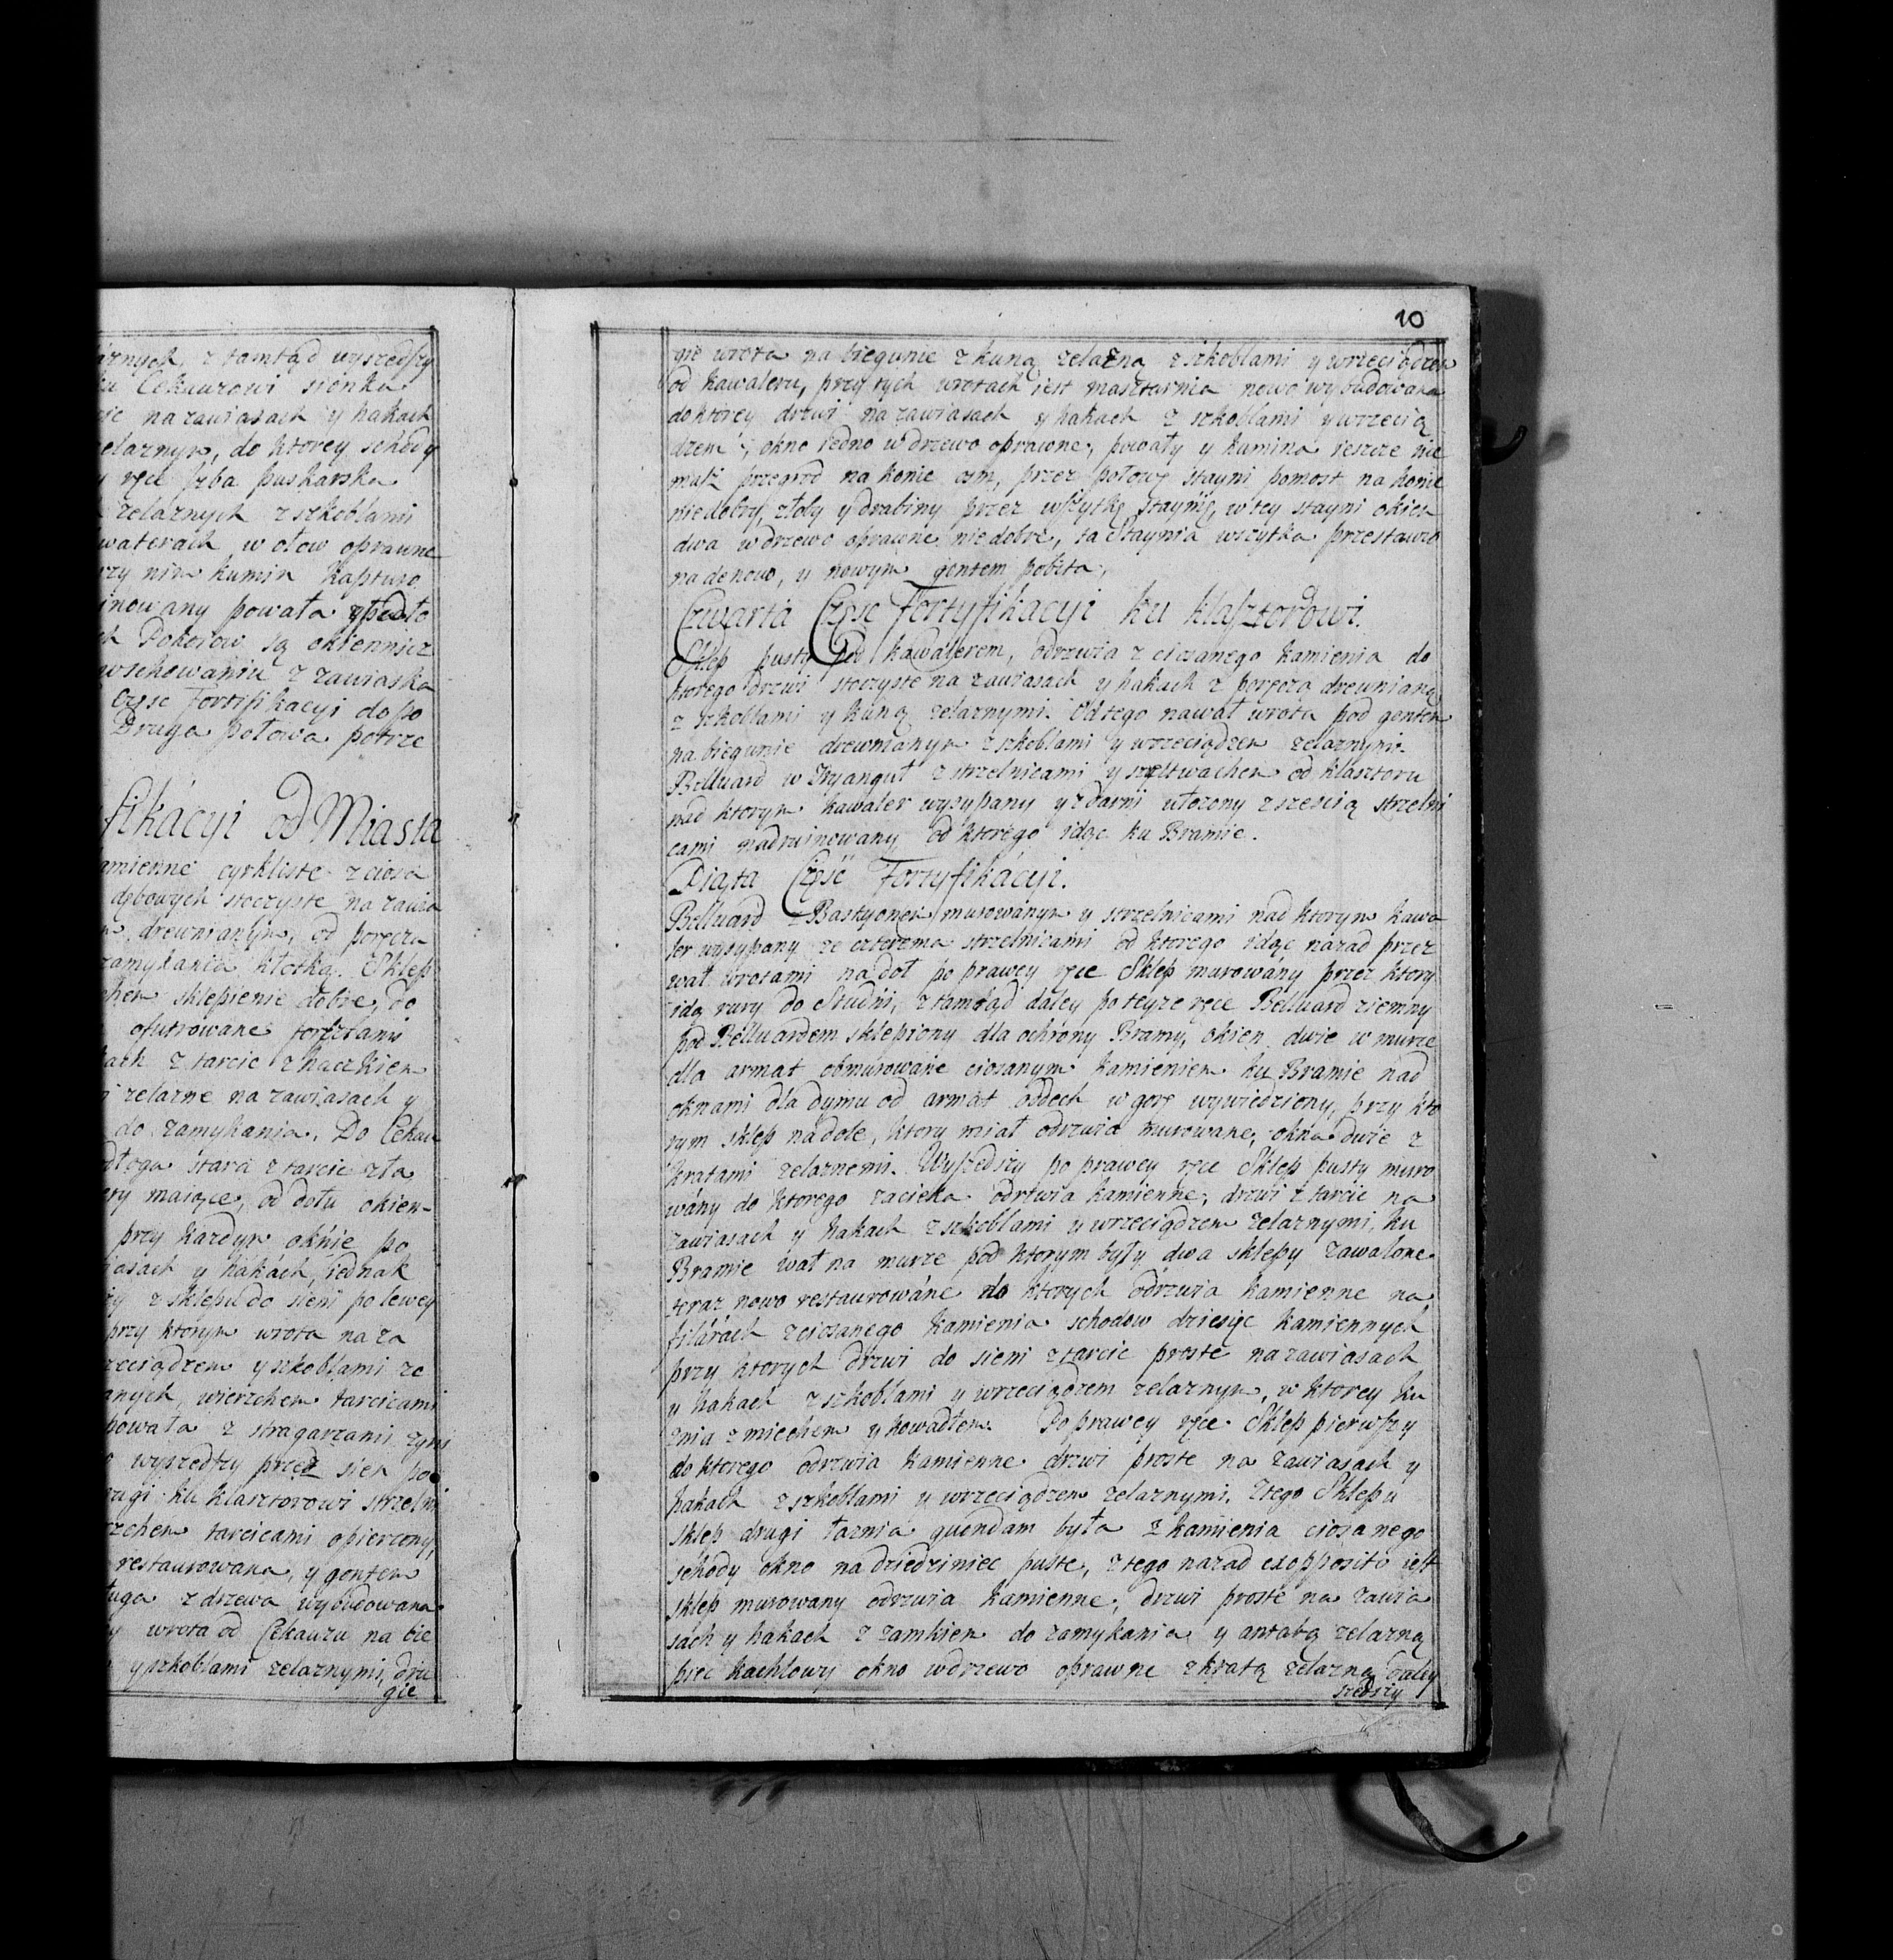 arznych z tamtąd wyszedszy
ku Cekauzowi sionka
na zawiasach y hakach
zelaznym, do ktorey schody
y ręce Izba puskarska
zelaznych z szkoblami
kwaterach w ołow oprawne
przy nim kumin kapturo
powała y
Pokoiow są okiennice
wschowaniu z zawiaska
częsc Fortifikacyi do po
Druga połowa potrze
fikácyi od Miasta
kamienne cyrkliste z ciosa
dębowych stoczyste na zawia
drewnianym, od poręcza
zamykania kłotka. Sklep
sklepienie dobre, do
ofutrowane
z tarcic z haczkiem
zelazne na zawiasach y
do zamykania. Do Cekau
podłoga stara z tarcic zła
maiące, od dołu okien-
przy kazdym oknie po
zawiasach y hakach, iednak
z sklepu do sieni po lewey
przy ktorym wrota na za
wrzeciądzem y szkoblami ze
wierzchem tarcicami
powała z stragarzami
wyszedszy przez sien po
drugi ku klasztorowi strzelni
wierzchem tarcicami opierzony
restaurowana, y gontem
długa z drzewa wybudowana
wrota od Cekauzu na bie
y szkoblami zelaznymi, dru
gie
10
gie wrota na biegunie z kuną zelazną z szkoblami y wrzeciądzem
od kawaleru, przy tych wrotach iest masztarnia nowo wybudowana
do ktorey drzwi na zawiasach y hakach z szkoblami y wrzecią
dzem, okno iedno w drzewo oprawne, powały y kamina ieszcze nie
masz przegrod na konie osm, przez połowę stayni pomost na konie
niedobry, złoby y drabiny przez wszytkę staynię, w tey stayni okien
dwa w drzewo oprawne niedobre, ta Staynia wszytka przestawio
na denowo, y nowym gontem pobita,
Czwarta Częsc Fortyfikacyi ku klasztorowi.
Sklep pusty pod kawalerem, odrzwia z ciosanego kamienia do
ktorego drzwi stoczyste na zawiasach y hakach z poręczą drewnianą
z szkoblami y kuną zelaznymi. Od tego na wał wrota pod gontem
na biegunie drewnianym z szkoblami y wrzeciądzem zelaznymi.
Belluard w Tryanguł z strzelnicami y szeltwachem od klasztoru
nad ktorym kawaler wysypany y z darni ułozony z szescią strzelni
cami nadruinowany, od ktorego idąc ku Bramie.
Piąta Częsc Fortyfikácyi.
Belluard z Bastyonem murowánym y strzelnicami nad ktorym kawa
ler wysypany ze czterema strzelnicami od ktorego idąc nazad przez
wał wrotami na doł po prawey ręce Sklep murowány przez ktory
idą rury do Studni, z tamtąd daley po teyze ręce Belluard ziemny
pod Belluardem sklepiony dla ochrony Bramy, okien dwie w murze
dla armat obmurowane ciosanym kamieniem ku Bramie nad
oknami dla dymu od armat oddech w gorę wywiedziony, przy kto
rym sklep na dole, ktory miał odrzwia murowane, okna dwie z
kratami zelaznemi. Wyszedszy po prawey ręce Sklep pusty muro
wány do ktorego zacieka odrzwia kamienne, drzwi z tarcic na
zawiasach y hakach z szkoblami y wrzeciądzem zelaznymi. ku
Bramie wał na murze pod ktorym były dwa sklepy zawalone
teraz nowo restaurowáne do ktorych odrzwia kamienne na
filárach z ciosanego kamienia schodow dziesięc kamiennych
przy ktorych drzwi do sieni z tarcic proste na zawiasach
y hakach z szkoblami y wrzeciądzem zelaznym, w ktorey ku
znia z miechem y kowadłem. Po prawey ręce Sklep pierwszy
do ktorego odrzwia kamienne drzwi proste na zawiasach y
hakach z szkoblami y wrzeciądzem zelaznymi. Z tego Sklepu
sklep drugi łaznia quondam była z kamienia ciosanego
schody okno na dziedziniec puste, z tego nazad exopposito iest
sklep murowany odrzwia kamienne, drzwi proste na zawia
sach y hakach z zamkiem do zamykania y antabą zelazną
piec kachlowy okno w drzewo oprawne z kratą zelazną daley
szedszy